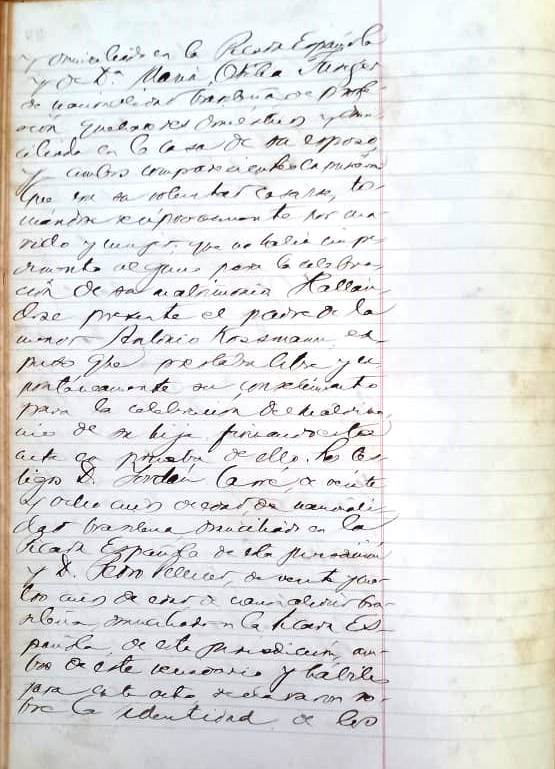 y domiciliado en la Picada Española
y de Dª Maria Otilia Junges
de nacionalidad brasileña de profe-
sión quehaceres domésticos y domi-
ciliada en la casa de su esposo,
y ambos comparecientes expusieron
que era su voluntad casarse, to-
mándose recíprocamente por ma-
rido y mujer, que no había impe-
dimento alguno para la celebra-
ción de su matrimonio. Hallán-
dose presente el padre de la
menor Antonio Kossmann, ex-
puso que prestaba libre y es-
pontáneamente su consentimiento
para la celebración del matrimo-
nio de su hija firmando esta
acta en prueba de ello. Los tes-
tigos D. Jordán Carré, de veinte
y ocho años de edad, de nacionali-
dad brasilena domiciliado en la
Picada Española de esta jurisdicción
y D. Pedro, de veinte y cua-
tro años de edad de nacionalidad bra-
sileña, domiciliado en la Picada Es-
pañola, de esta jurisdicción, am-
bos de este vecindario y hábiles
para este acto declararon so-
bre la identidad de los